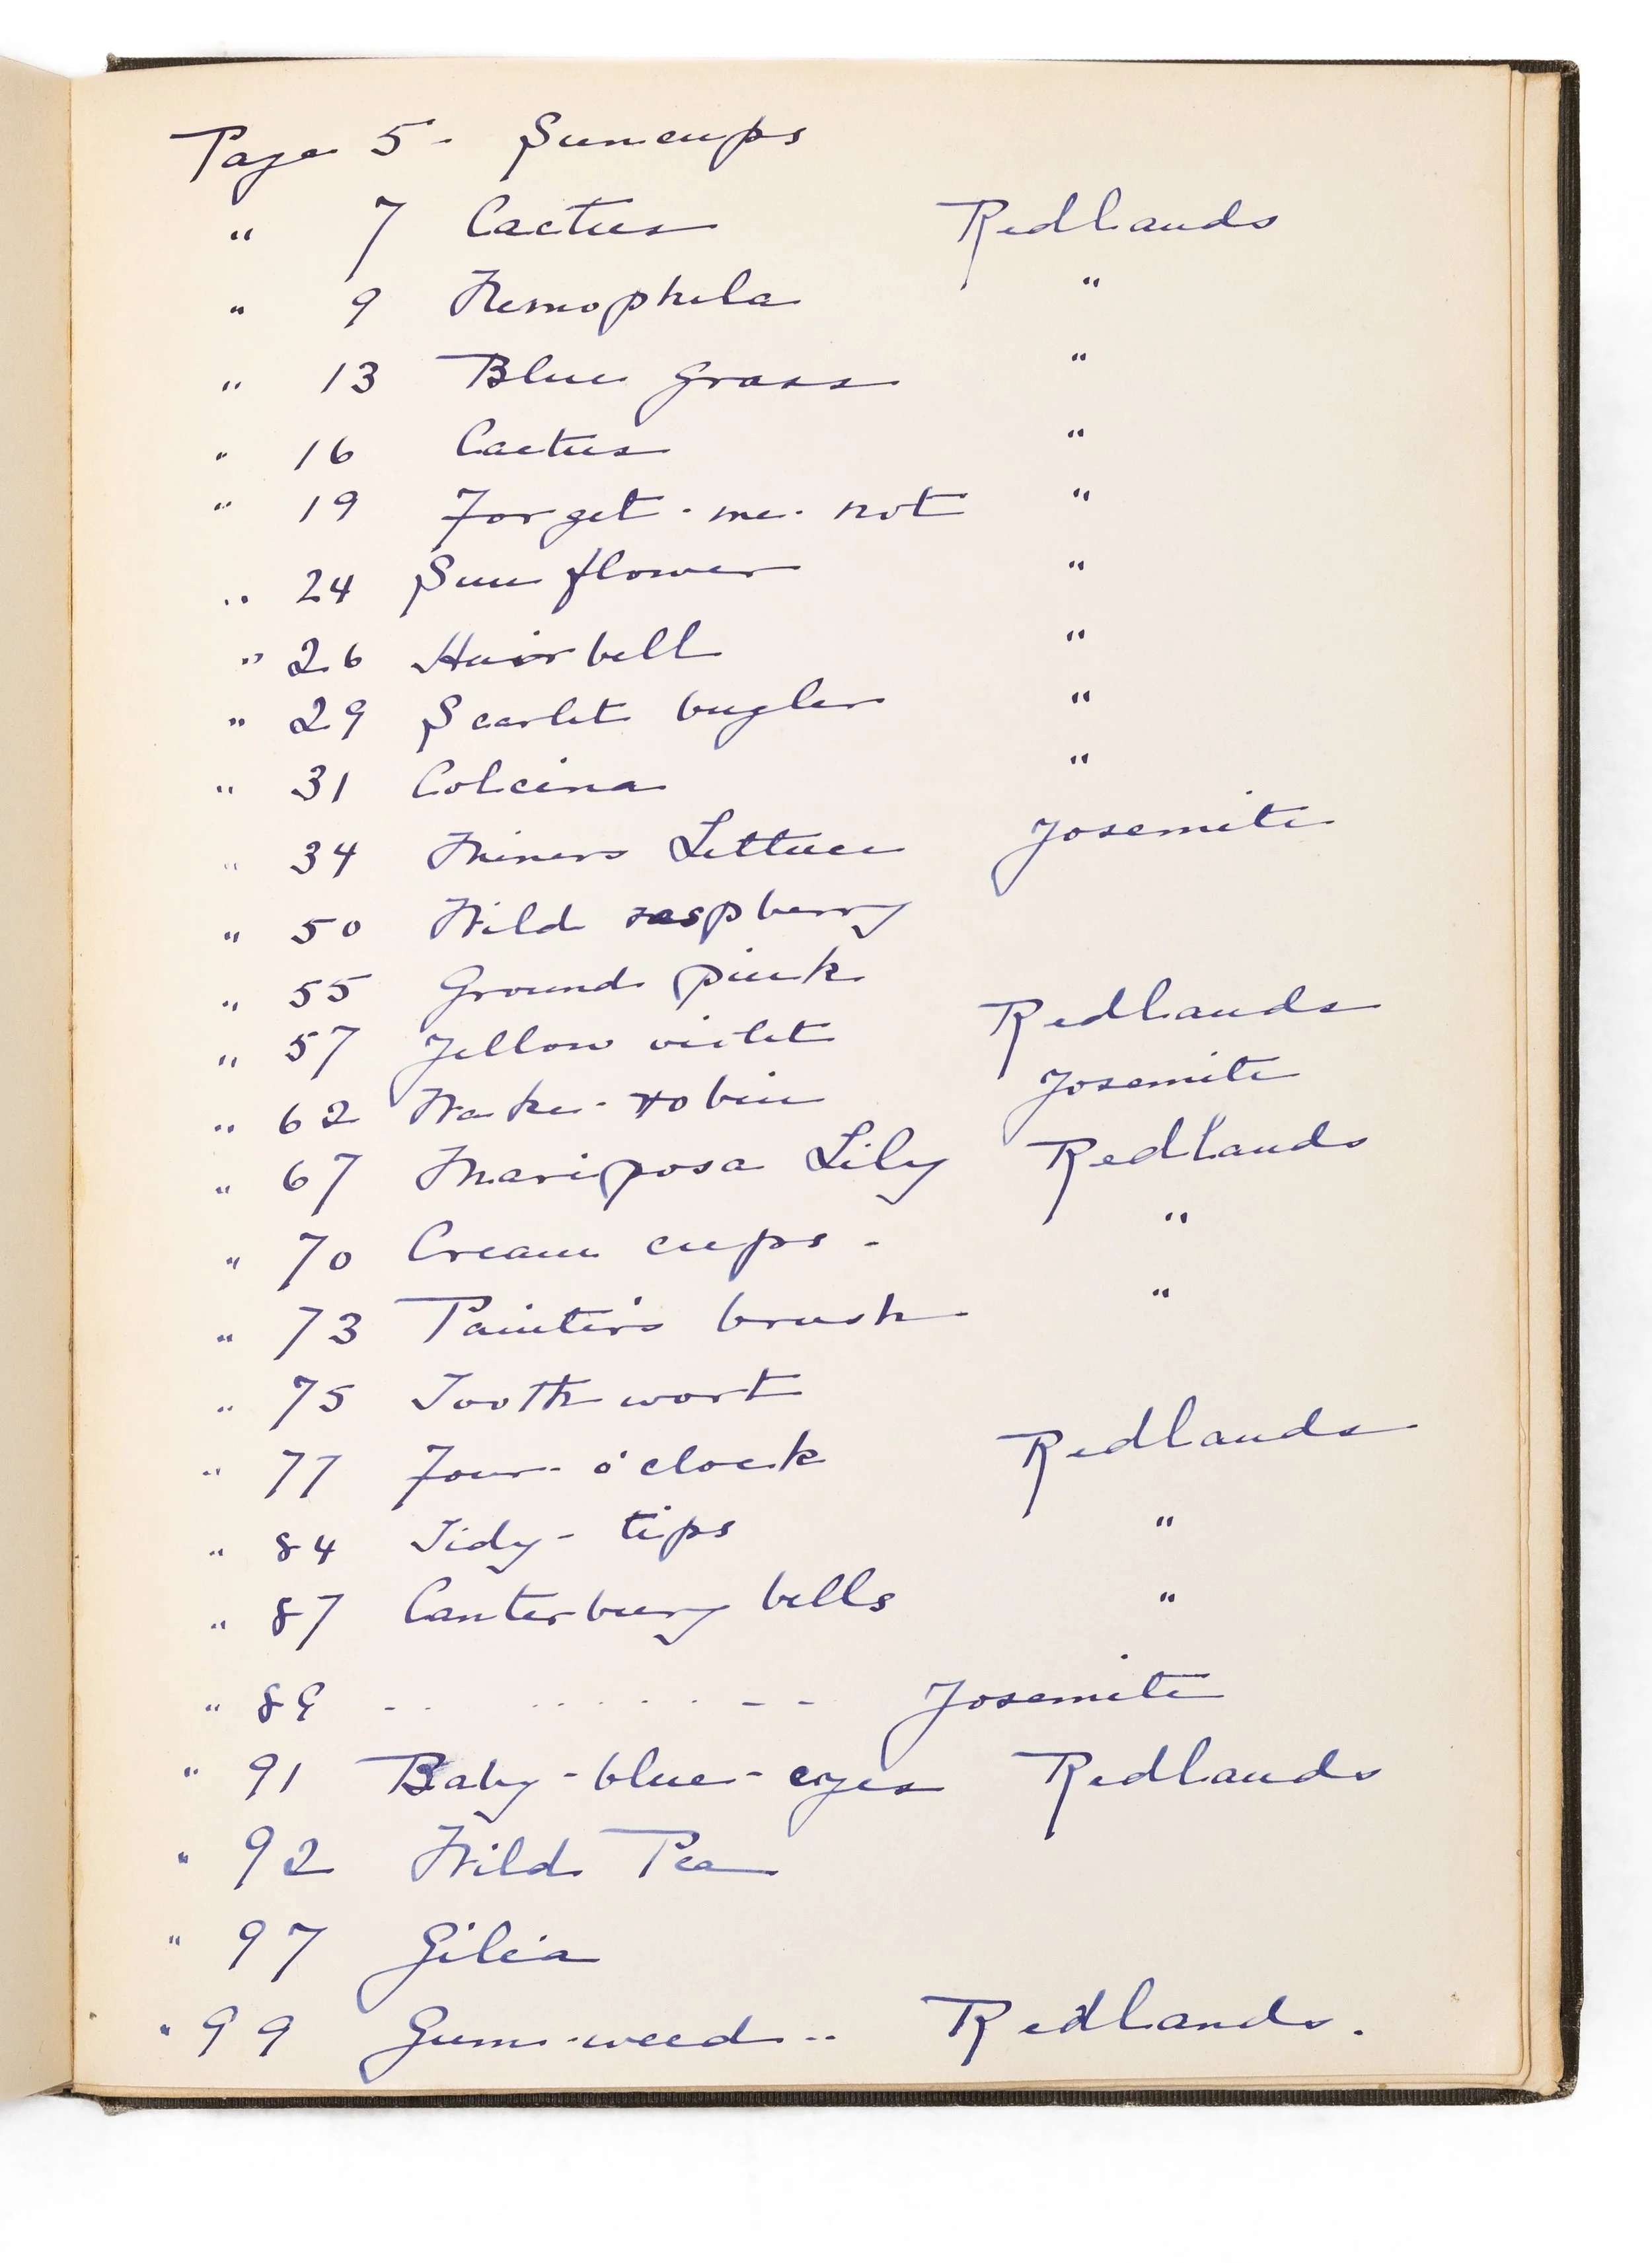 Page 5- Suncups
" 7 Cactus Redlands
" 9 Nemophela "
" 13 Blue grass "
" 16 Cactus "
" 19 Forget-me-not "
" 24 Sun flower "
" 26 Hairbell "
" 29 Scarlet bugler "
" 31 "
" 34 Miners Lettuce Yosemite
" 50 Wild raspberry
" 55 Ground pink
" 57 Yellow violet Redlands
" 62 Wake-robin Yosemite
" 67 Mariposa Lily Redlands
" 70 Cream cups - "
" 73 Painter's brush "
" 75 Tooth wort
" 77 Four-o'clock Redlands
" 84 Tidy-tips "
" 87 Canterbury bells "
" 89 -- ..... -- Yosemite
" 91 Baby-blue-eyes Redlands
" 92 Wild Pea
" 97 Gilia
" 99 Gum-weed -- Redlands.